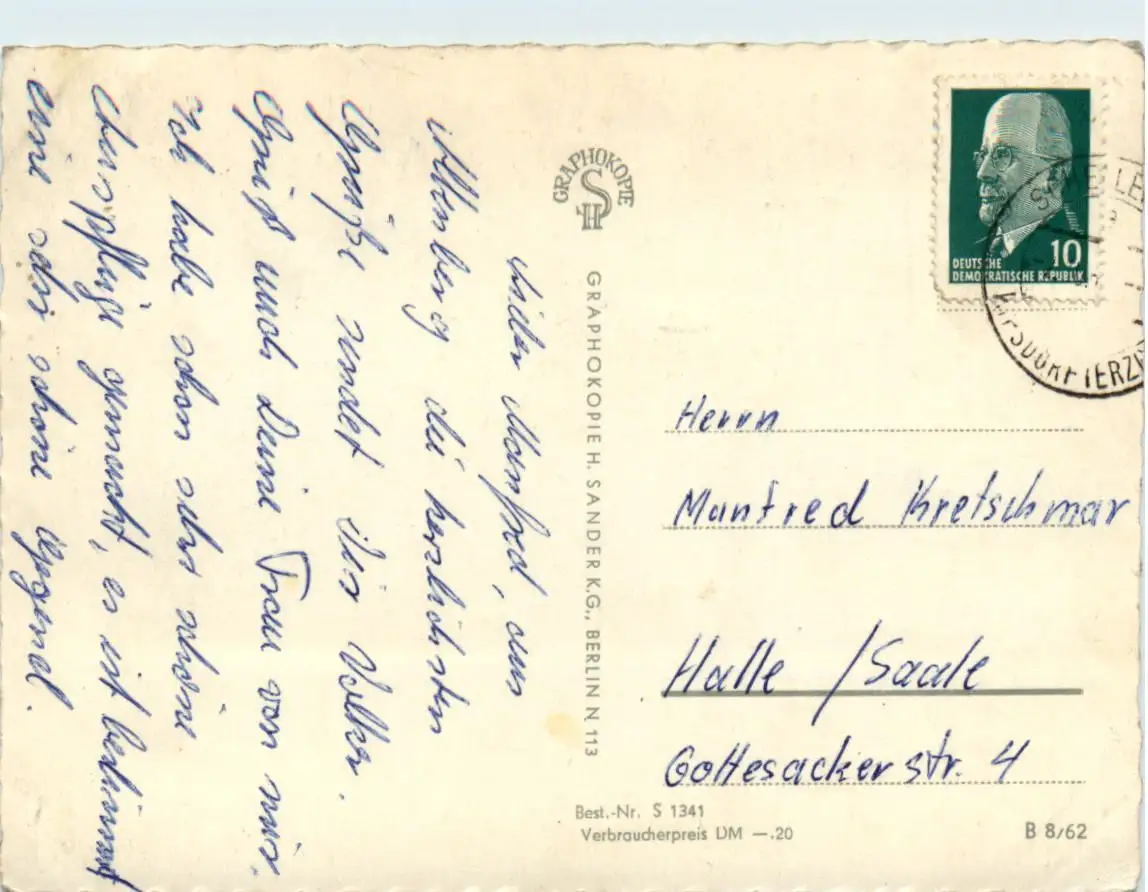 Lieber Manfred, aus
Altenberg die herzlichsten
Grüße sendet dir Volker.
Grüß auch Deine Frau von mir.
Ich habe schon sehr schöne
Ausflüge gemacht, es ist bestimmt
eine sehr schöne Gegend.
GRAPHOKOPIE
SH
GRAPHOKOPIE H. SANDER K.G., BERLIN N 113
10
DEUTSCHE
DEMOKRATISCHE REPUBLIK
Herrn
Manfred Kretschmar
Halle /Saale
Gottesackerstr. 4
Best.-Nr. S 1341
Verbraucherpreis DM —.20
B 8/62